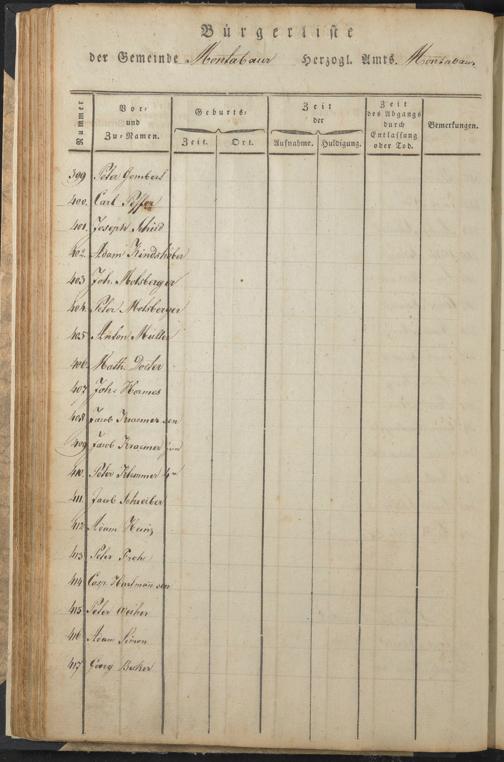 Bürgerliste
der Gemeinde Montabaur Herzogl. Amts. Montabaur.
Nummer
Vor- und Zu-Namen.
Geburts-
Zeit.
Ort.
Zeit der
Aufnahme.
Huldigung.
Zeit des Abgangs durch Entlassung oder Tod.
Bemerkungen.
399 Peter Gombert
400. Carl
401. Joseph Schied
402. Adam Kindshöber
403 Joh. Molsberger
404. Peter Molsberger
405 Anton Muller
406. Math. Doeler
407 Joh. Hannes
408 Jacob Kraemer sen
409 Jacob Kraemer jun
410. Peter Klemmer
411. Jacob Schreiber
412 Adam Heinz
413. Peter
414 Hartmañ sen
415 Peter Weiher
416 Adam Simon
417 Georg Becker